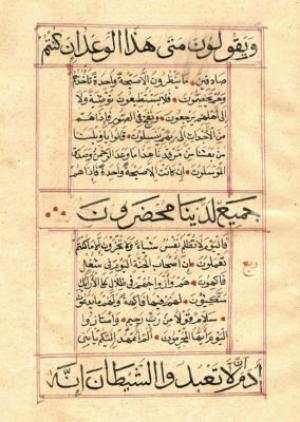 ويقولون متى هذا الوعد ان كنتم
صادقين ما ينظرون الا صيحة واحدة تأخذهم
وهم يخصمون فلا يستطيعون توصية ولا
الى اهلهم يرجعون ونفخ في الصور فاذا هم
من الاجداث الى ربهم ينسلون قالوا يا ويلنا
من بعثنا من مرقدنا هذا ما وعد الرحمن وصدق
المرسلون ان كانت الا صيحة واحدة فاذا هم
جميع لدينا محضرون
فاليوم لا تظلم نفس شيئا ولا تجزون الا ما كنتم
تعملون ان اصحاب الجنة اليوم في شغل
فاكهون هم وازواجهم في ظلال على الارائك
متكئون لهم فيها فاكهة ولهم ما يدعون
سلام قولا من رب رحيم وامتازوا
اليوم ايها المجرمون الم اعهد اليكم يا بني
ادم ان لا تعبدوا الشيطان انه
ربع